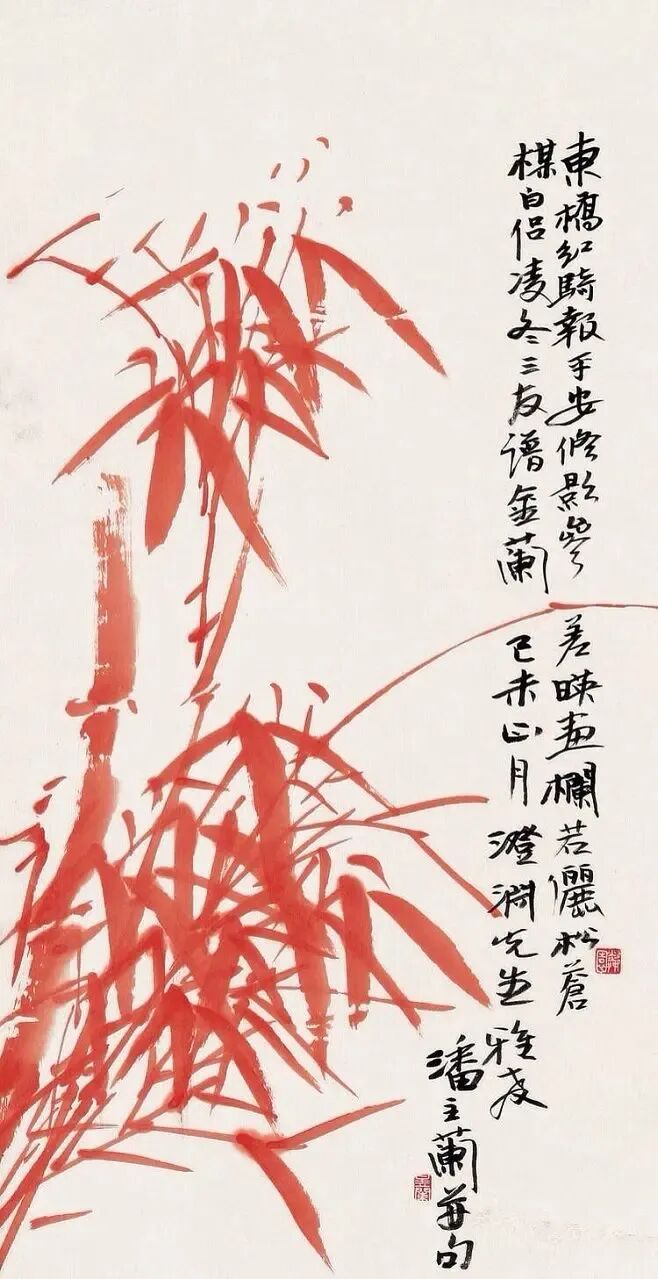 東橋紅騎報平安修影參差映畫欄若儷松蒼
楳白侶凌冬三友譜金蘭 己未正月 澄淵先生
雅教
潘主蘭並句